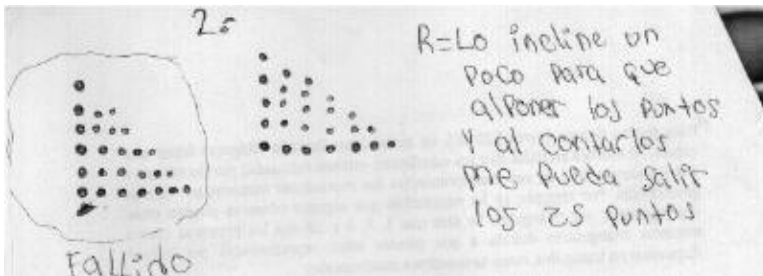 2=
R=Lo incline un
poco para que
al poner los puntos
y al contarlos
me pueda salir
los 25 puntos
Fallido